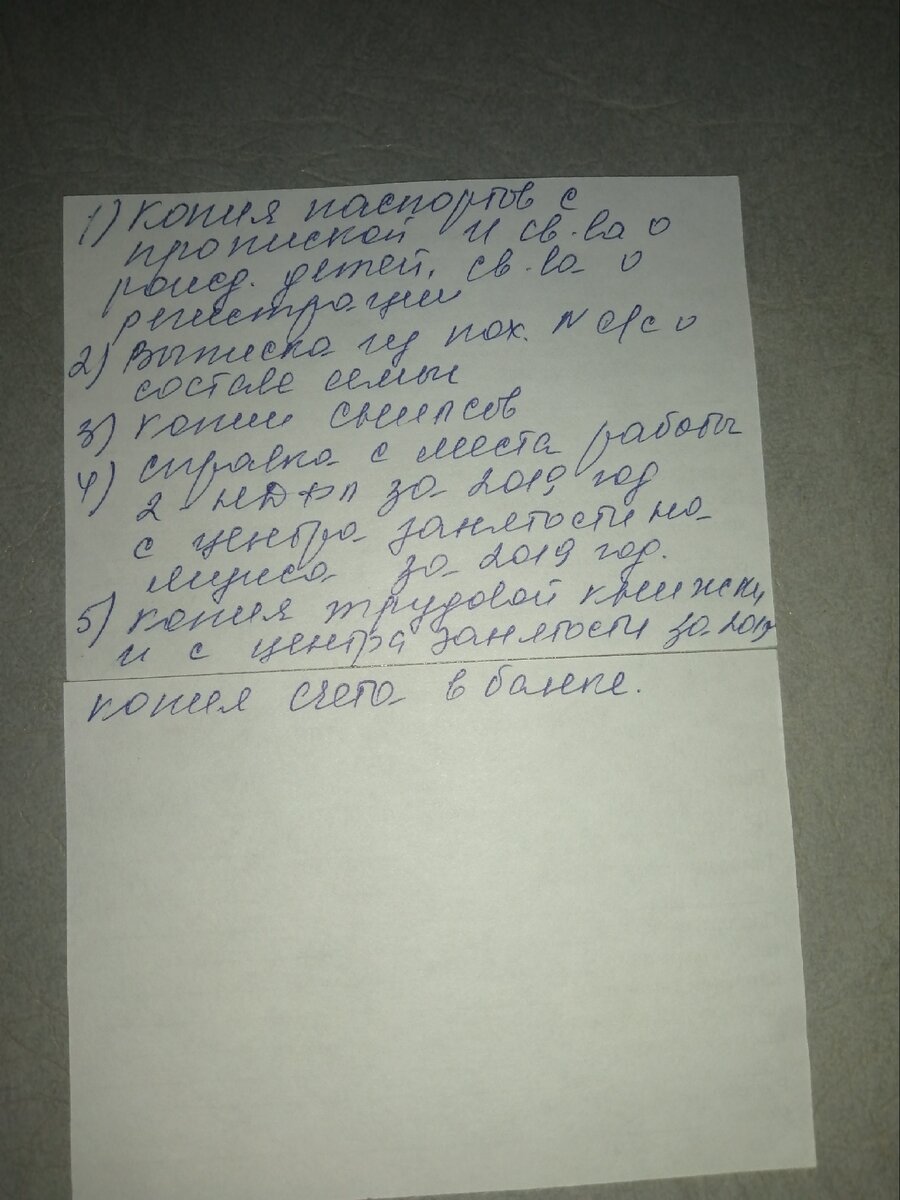 1) Копия паспортов с
пропиской и св.ва о
рожд. детей, св.ва о
регистрации
2) Выписка из пох. N с/с о
составе семьи
3) копии снилсов
4) справка с места работы
2-НДФЛ за 2019 год
с центра занятости на
за 2019 год.
5) копия трудовой книжки
и с центра занятости за 2019
копия счета в банке.